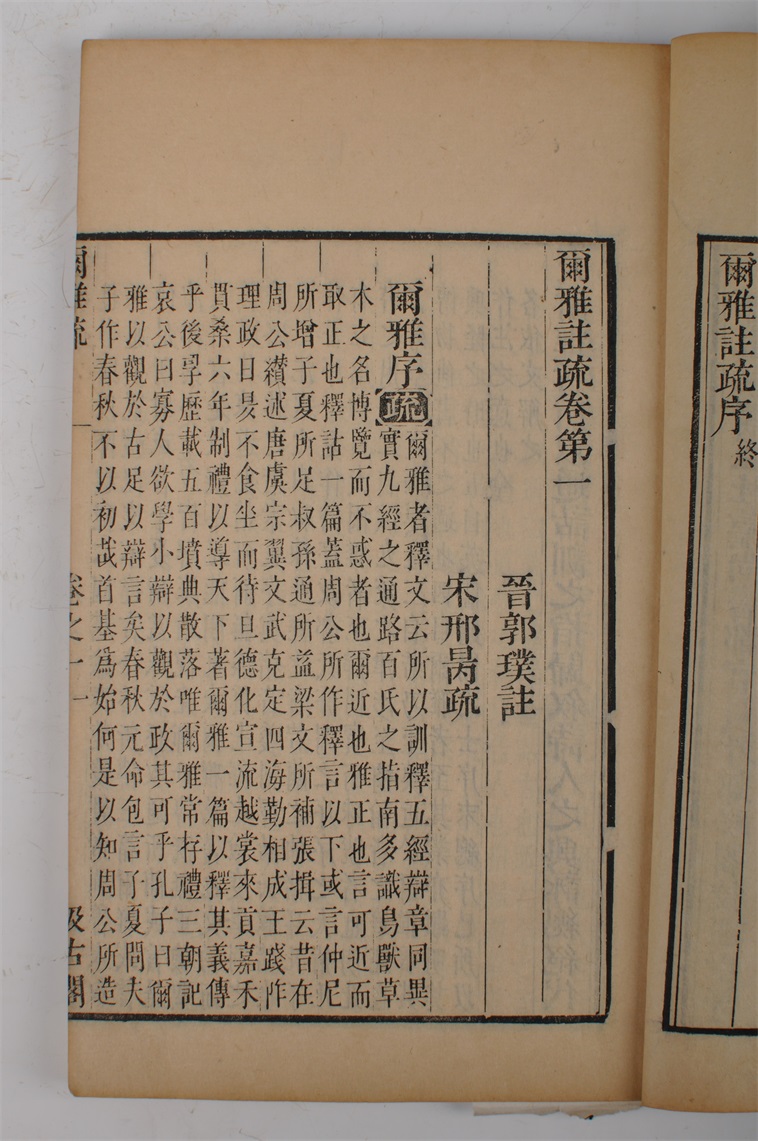 爾雅註疏序 終
爾雅註疏卷第一
晉郭璞註
宋邢昺疏
爾雅序 疏 爾雅者釋文云所以訓釋五經辯章同異
實九經之通路百氏之指南多識鳥獸草
木之名博覽而不惑者也爾近也雅正也言可近而
取正也釋詁一篇蓋周公所作釋言以下或言仲尼
所增子夏所足叔孫通所益梁文所補張揖云昔在
周公纘述唐虞宗翼文武克定四海勤相成王踐阼
理政日昃不食坐而待旦德化宣流越裳來貢嘉禾
貫桑六年制禮以導天下著爾雅一篇以釋其義傳
乎後孠歷載五百墳典散落唯爾雅常存禮三朝記
哀公曰寡人欲學小辯以觀於政其可乎孔子曰爾
雅以觀於古足以辯言矣春秋元命包言子夏問夫
子作春秋不以初哉首基爲始何是以知周公所造
爾雅疏 卷之一 一 汲古閣